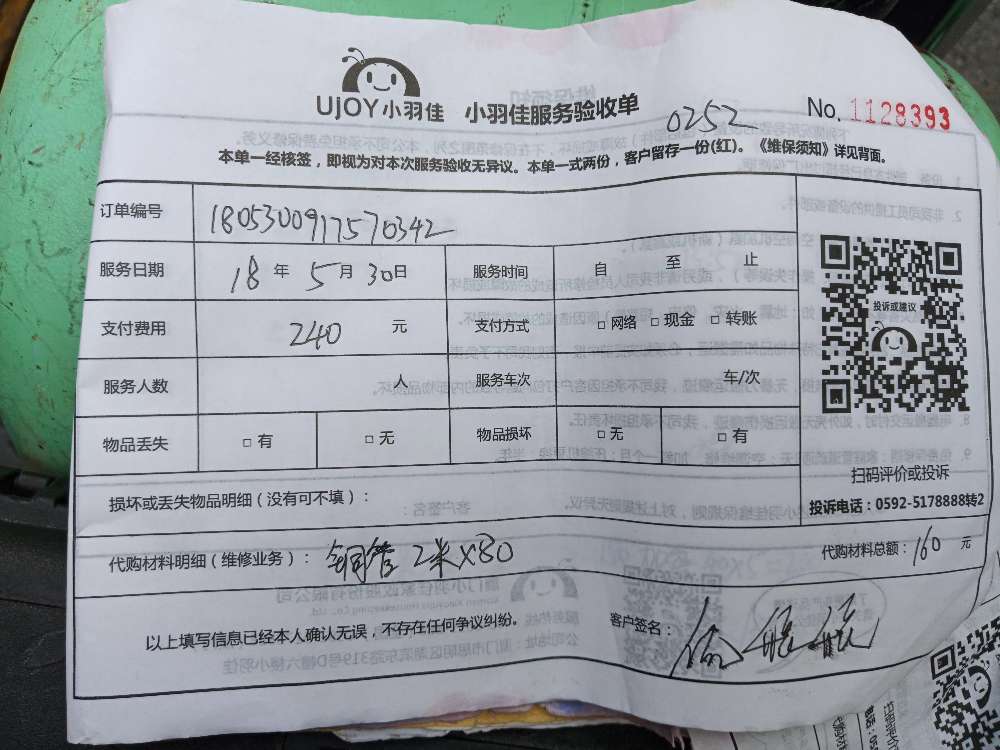 UJOY小羽佳 小羽佳服务验收单 0252 No. 1128393
本单一经核签，即视为对本次服务验收无异议。本单一式两份，客户留存一份(红)。《维保须知》详见背面。
订单编号 1805300917570342
服务日期 18 年 5 月 30 日 服务时间 自 至 止
支付费用 240 元 支付方式 □ 网络 □ 现金 □ 转账
服务人数 人 服务车次 车/次
物品丢失 □ 有 □ 无 物品损坏 □ 无 □ 有
投诉或建议
扫码评价或投诉
投诉电话：0592-5178888转2
损坏或丢失物品明细（没有可不填）：
代购材料明细（维修业务）： 铜管 2米×80 代购材料总额：160 元
以上填写信息已经本人确认无误，不存在任何争议纠纷。 客户签名：